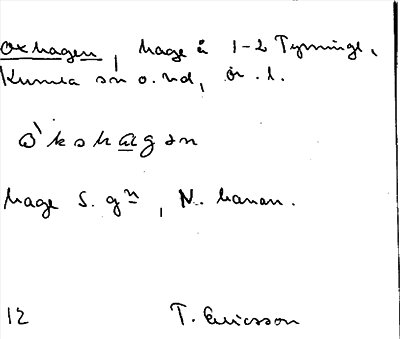 Oxhagen, hage å 1-2 Tynninge,
Kumla sn o. hd, ör. l.
ò`kshagən
hage S. gⁿ, N. kanan.
12 T. Ericsson